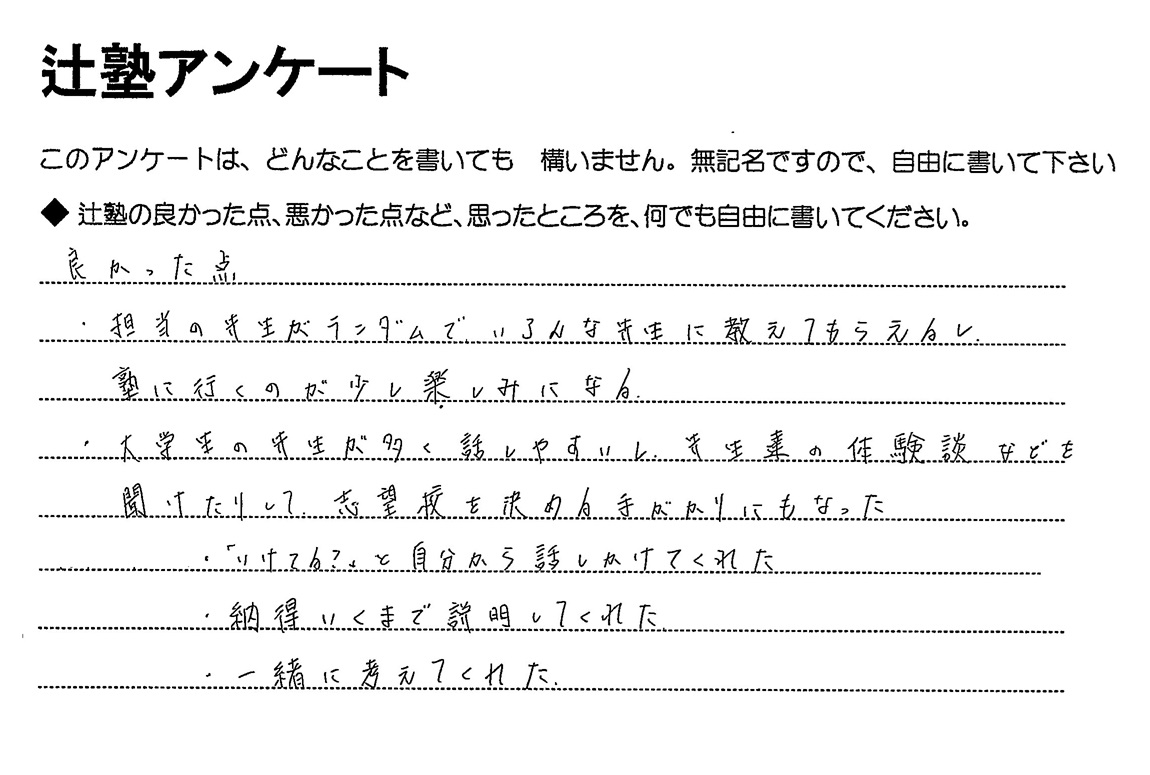 辻塾アンケート
このアンケートは、どんなことを書いても 構いません。無記名ですので、自由に書いて下さい
◆ 辻塾の良かった点、悪かった点など、思ったところを、何でも自由に書いてください。
良かった点
・担当の先生がランダムで、いろんな先生に教えてもらえるし、
塾に行くのが少し楽しみになる。
・大学生の先生が多く話しやすいし、先生達の体験談などを
聞けたりして、志望校を決める手がかりにもなった
・「いけてる?」と自分から話しかけてくれた
・納得いくまで説明してくれた。
・一緒に考えてくれた。